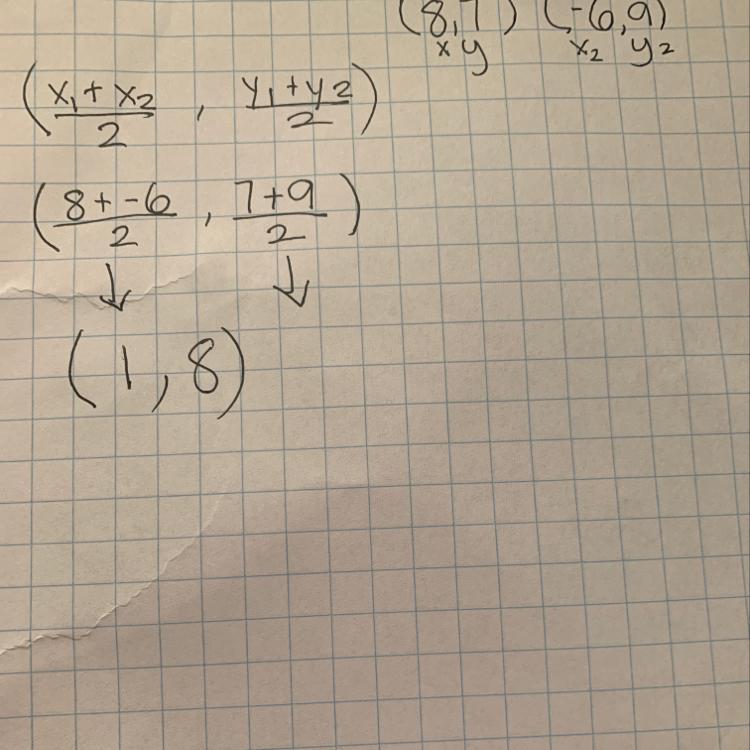 (8,7) (-6,9)
x y x₂ y₂
(x₁ + x₂ / 2 , y₁ + y₂ / 2)
(8 + -6 / 2 , 7+9 / 2)
↓ ↓
(1, 8)